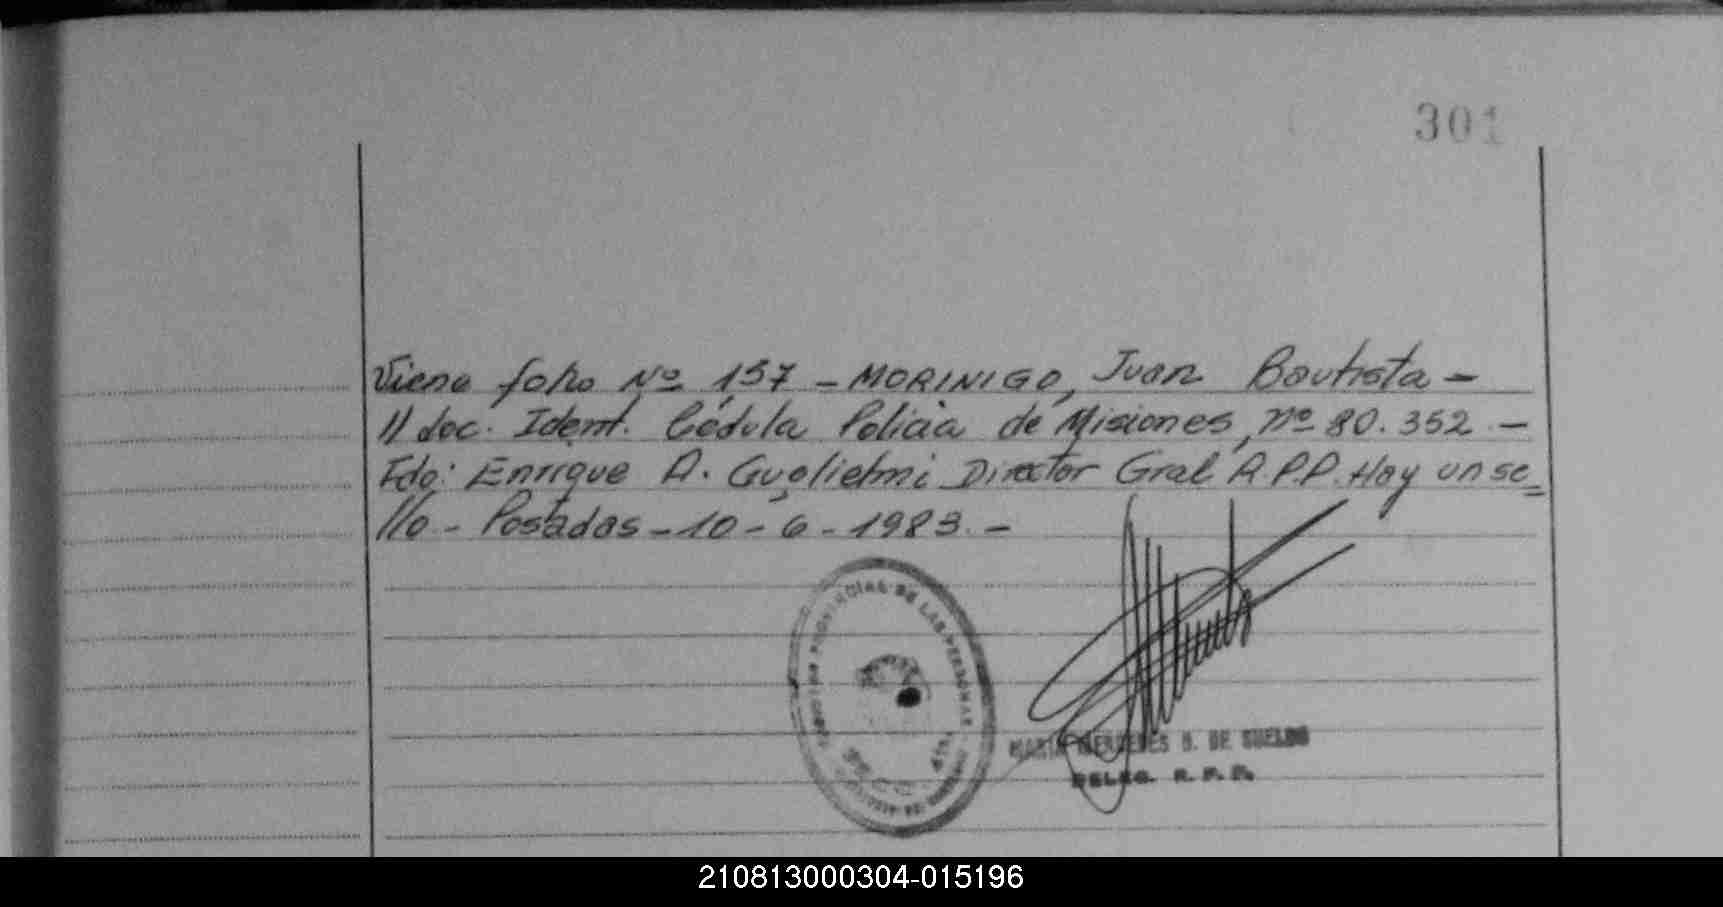 301
Viene folio Nº 157 - MORINIGO, Juan Bautista -
// doc. Ident. Cédula Policia de Misiones, nº 80.352 -
Fdo: Enrique A. Guglielmi Director Gral R.P.P. Hay un se=
llo - Posadas - 10 - 6 - 1983. -
PROVINCIAL DE LAS PERSONAS
MARIA MERCEDES B. DE SUELDO
DELEG. R. P. P.
210813000304-015196